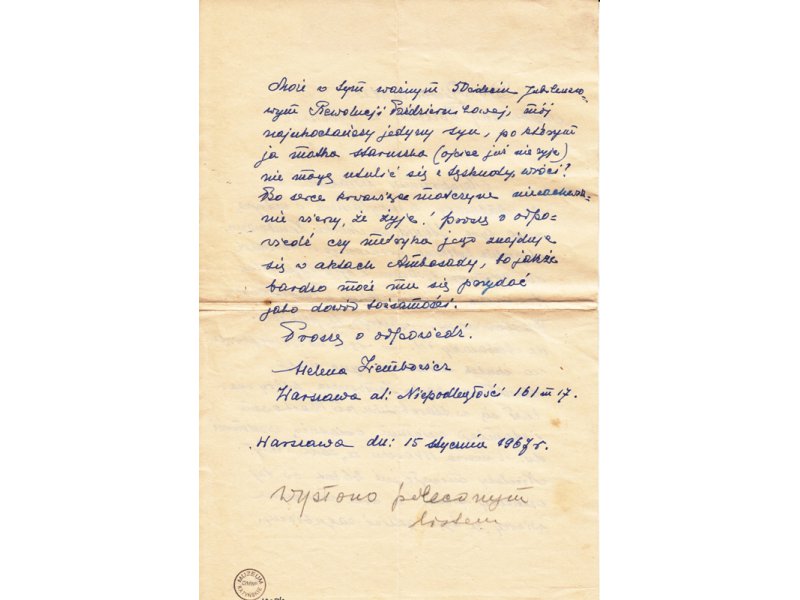 Może w tym ważnym 50 leciu Jubileuszo-
wym Rewolucji Październikowej, mój
najukochańszy jedyny syn, po którym
ja matka staruszka (ojciec już nie żyje)
nie mogę utulić się z tęsknoty, wróci?
Bo serce krwawiące matczyne niezachwia-
nie wierzy, że żyje! Proszę o odpo-
wiedź czy metryka jego znajduje
się w aktach Ambasady, bo jakże
bardzo może mu się przydać
jako dowód tożsamości.
Proszę o odpowiedź.
Helena Ziembowicz
Warszawa al: Niepodległości 161 m 17.
Warszawa dn: 15 stycznia 1967 r.
Wysłano poleconym
listem
MUZEUM
KATYŃSKIE